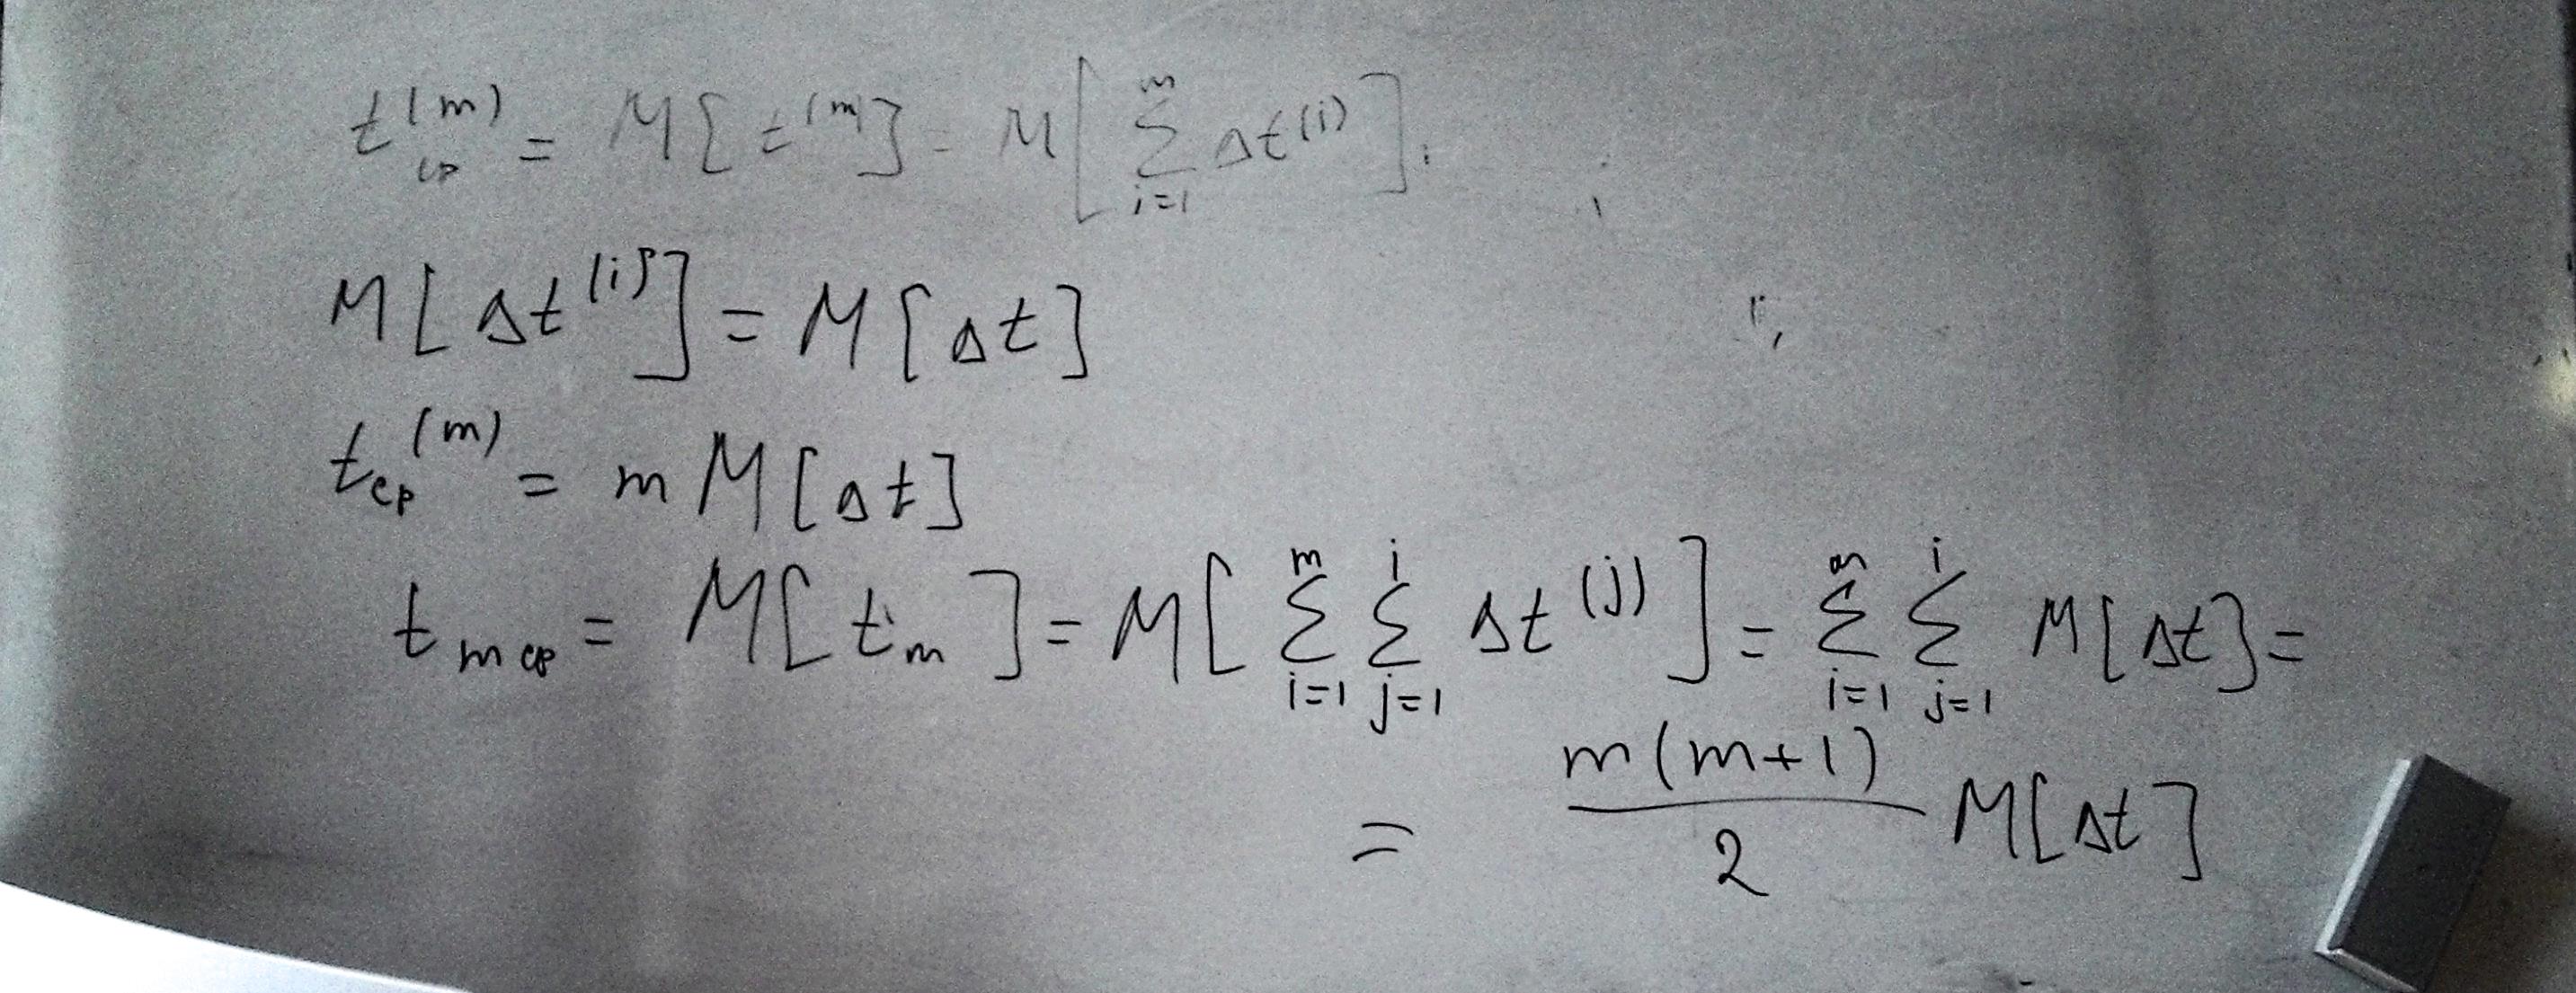 t_{ср}^{(m)} = M[t^{(m)}] = M[\sum_{i=1}^{m} Δt^{(i)}];
M[Δt^{(i)}] = M[Δt]
t_{ср}^{(m)} = m M[Δt]
t_{m ср} = M[t_m] = M[\sum_{i=1}^{m} \sum_{j=1}^{i} Δt^{(j)}] = \sum_{i=1}^{m} \sum_{j=1}^{i} M[Δt] =
= \frac{m(m+1)}{2} M[Δt]